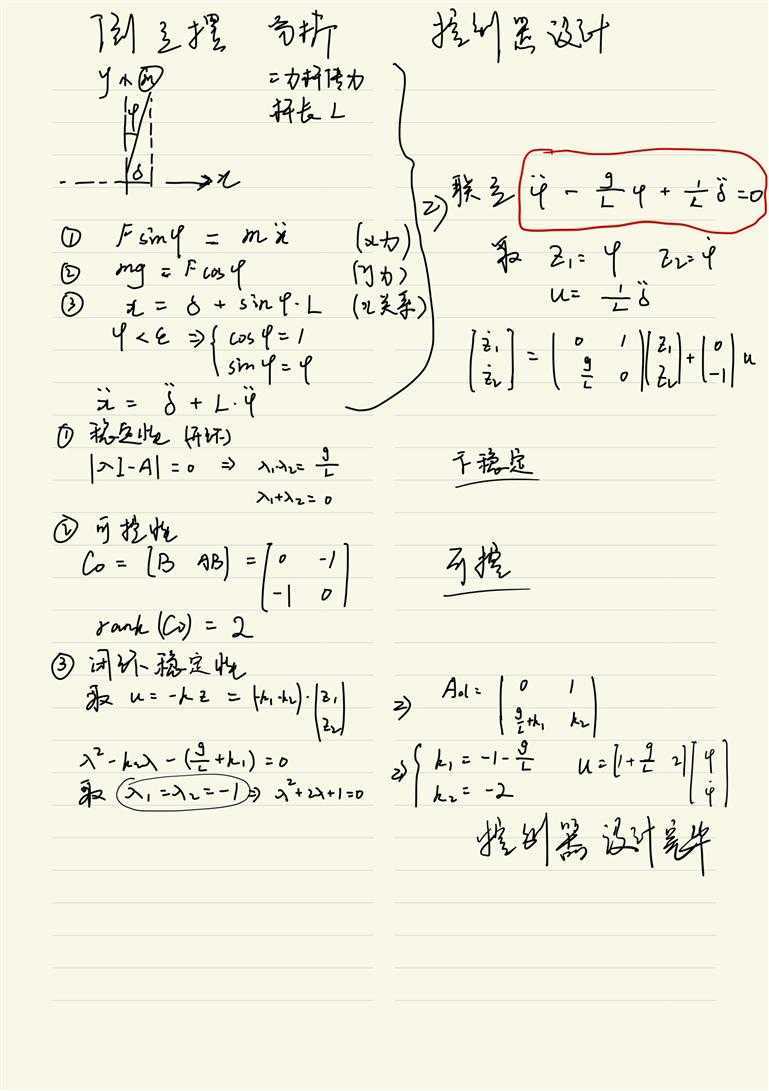 倒立摆 分析 控制器设计
y m
φ
δ
x
二力杆传力
杆长 L
① F sinφ = mẍ (x力)
② mg = F cosφ (y力)
③ x = δ + sinφ·L (x关系)
φ < ε ⇒ { cosφ = 1
sinφ = φ
ẍ = δ̈ + L·φ̈
⇒ 联立 φ̈ - g/L φ + 1/L δ̈ = 0
取 z₁ = φ z₂ = φ̇
u = 1/L δ̈
[ż₁ ż₂] = [0 1; g/L 0] [z₁ z₂] + [0 -1] u
① 稳定性 (开环)
|λI-A| = 0 ⇒ λ₁·λ₂ = g/L
λ₁+λ₂ = 0
不稳定
② 可控性
Co = [B AB] = [0 -1; -1 0]
rank(Co) = 2
可控
③ 闭环稳定性
取 u = -kz = (-k₁ -k₂)·[z₁ z₂]
⇒ Acl = [0 1; g/L+k₁ k₂]
λ² - k₂λ - (g/L + k₁) = 0
取 λ₁ = λ₂ = -1 ⇒ λ² + 2λ + 1 = 0
⇒ { k₁ = -1 - g/L
k₂ = -2
u = [1 + g/L 2] [φ φ̇]
控制器设计完毕